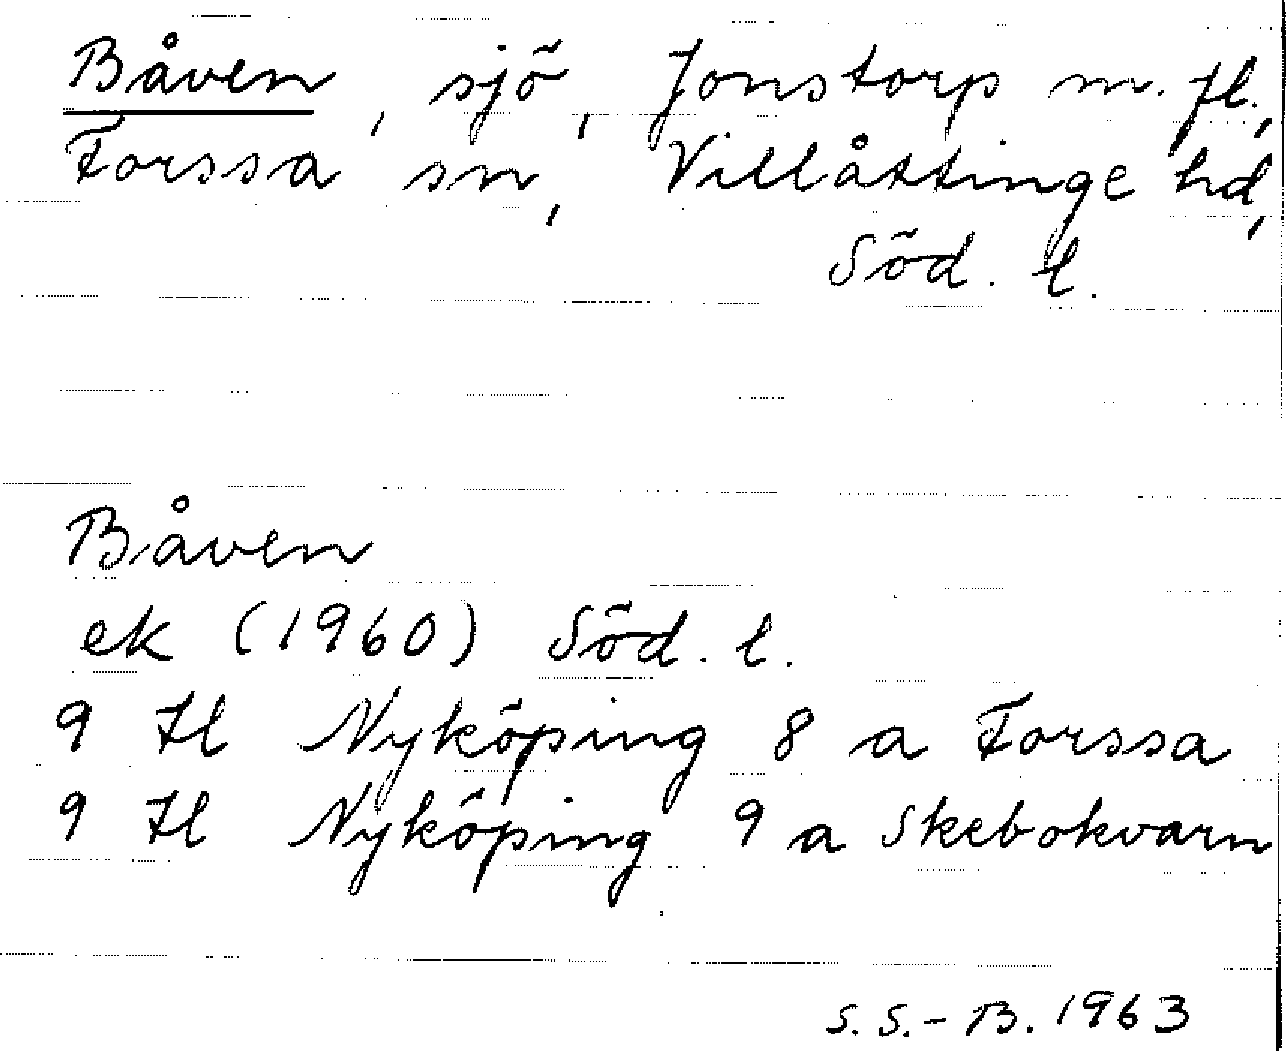 Båven, sjö, Jonstorp m. fl.,
Forssa sn, Villåttinge hd,
Söd. l.
Båven
ek (1960) Söd. l.
9 H Nyköping 8 a Forssa
9 H Nyköping 9 a Skebokvarn
S. S.-B. 1963